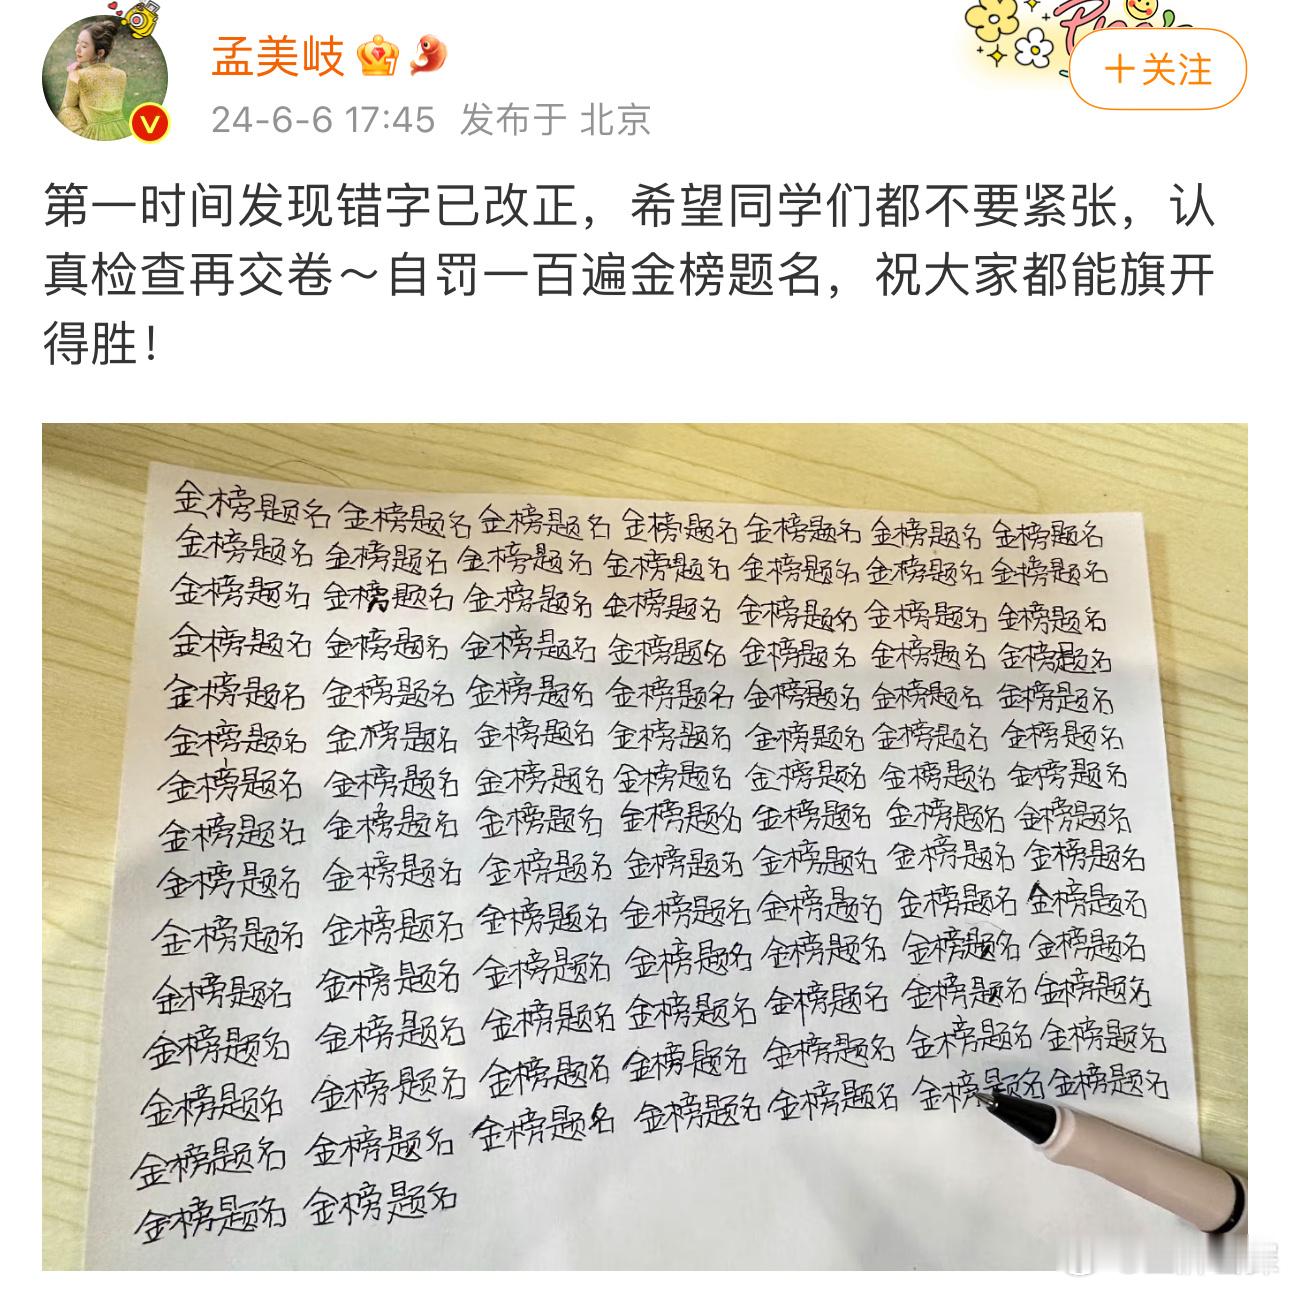 孟美岐
+关注
24-6-6 17:45 发布于 北京
第一时间发现错字已改正，希望同学们都不要紧张，认
真检查再交卷～自罚一百遍金榜题名，祝大家都能旗开
得胜！
金榜题名 金榜题名 金榜题名 金榜题名 金榜题名 金榜题名 金榜题名
金榜题名 金榜题名 金榜题名 金榜题名 金榜题名 金榜题名 金榜题名
金榜题名 金榜题名 金榜题名 金榜题名 金榜题名 金榜题名 金榜题名
金榜题名 金榜题名 金榜题名 金榜题名 金榜题名 金榜题名 金榜题名
金榜题名 金榜题名 金榜题名 金榜题名 金榜题名 金榜题名 金榜题名
金榜题名 金榜题名 金榜题名 金榜题名 金榜题名 金榜题名 金榜题名
金榜题名 金榜题名 金榜题名 金榜题名 金榜题名 金榜题名 金榜题名
金榜题名 金榜题名 金榜题名 金榜题名 金榜题名 金榜题名 金榜题名
金榜题名 金榜题名 金榜题名 金榜题名 金榜题名 金榜题名 金榜题名
金榜题名 金榜题名 金榜题名 金榜题名 金榜题名 金榜题名 金榜题名
金榜题名 金榜题名 金榜题名 金榜题名 金榜题名 金榜题名 金榜题名
金榜题名 金榜题名 金榜题名 金榜题名 金榜题名 金榜题名 金榜题名
金榜题名 金榜题名 金榜题名 金榜题名 金榜题名 金榜题名 金榜题名
金榜题名 金榜题名 金榜题名 金榜题名 金榜题名 金榜题名 金榜题名
金榜题名 金榜题名